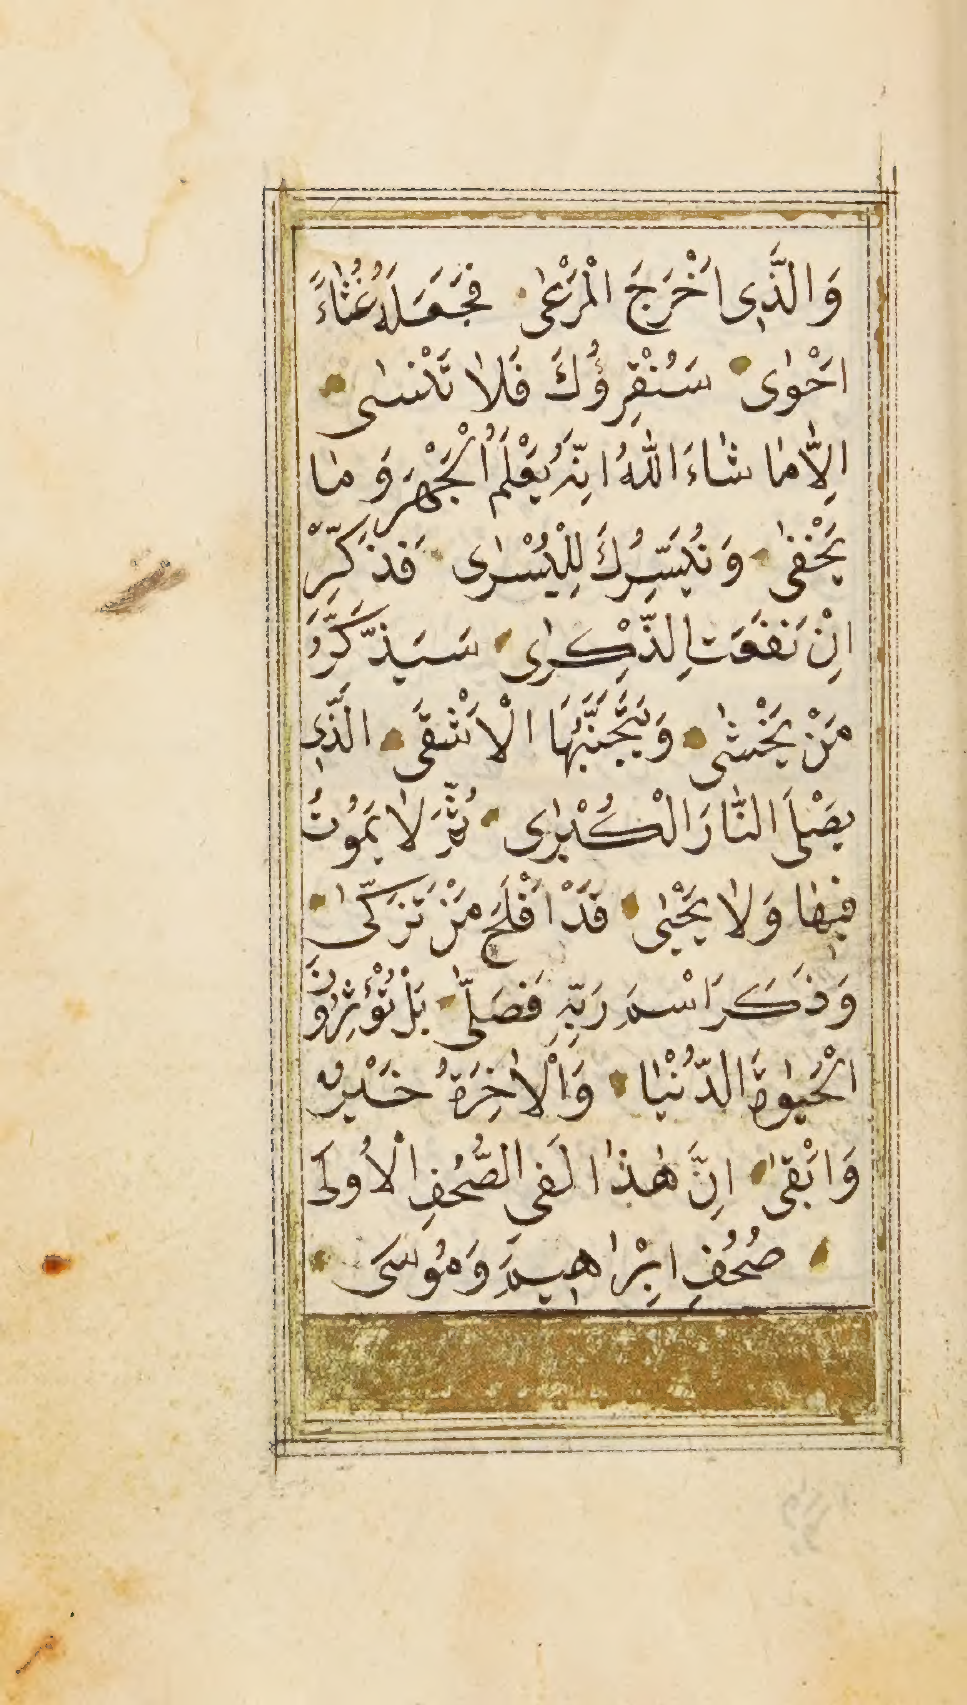 وَالَّذٖى اَخْرَجَ الْمَرْعٰى فَجَعَلَهُ غُثَٓاءً
اَحْوٰى سَنُقْرِؤُكَ فَلَا تَنْسٰى
اِلَّا مَا شَٓاءَ اللّٰهُ اِنَّهُ يَعْلَمُ الْجَهْرَ وَمَا
يَخْفٰى وَنُيَسِّرُكَ لِلْيُسْرٰى فَذَكِّرْ
اِنْ نَفَعَتِ الذِّكْرٰى سَيَذَّكَّرُ
مَنْ يَخْشٰى وَيَتَجَنَّبُهَا الْاَشْقَى الَّذٖى
يَصْلَى النَّارَ الْكُبْرٰى ثُمَّ لَا يَمُوتُ
فٖيهَا وَلَا يَحْيٰى قَدْ اَفْلَحَ مَنْ تَزَكّٰى
وَذَكَرَ اسْمَ رَبِّهٖ فَصَلّٰى بَلْ تُؤْثِرُونَ
الْحَيٰوةَ الدُّنْيَا وَالْاٰخِرَةُ خَيْرٌ
وَاَبْقٰى اِنَّ هٰذَا لَفِى الصُّحُفِ الْاُولٰى
صُحُفِ اِبْرٰاهٖيمَ وَمُوسٰى